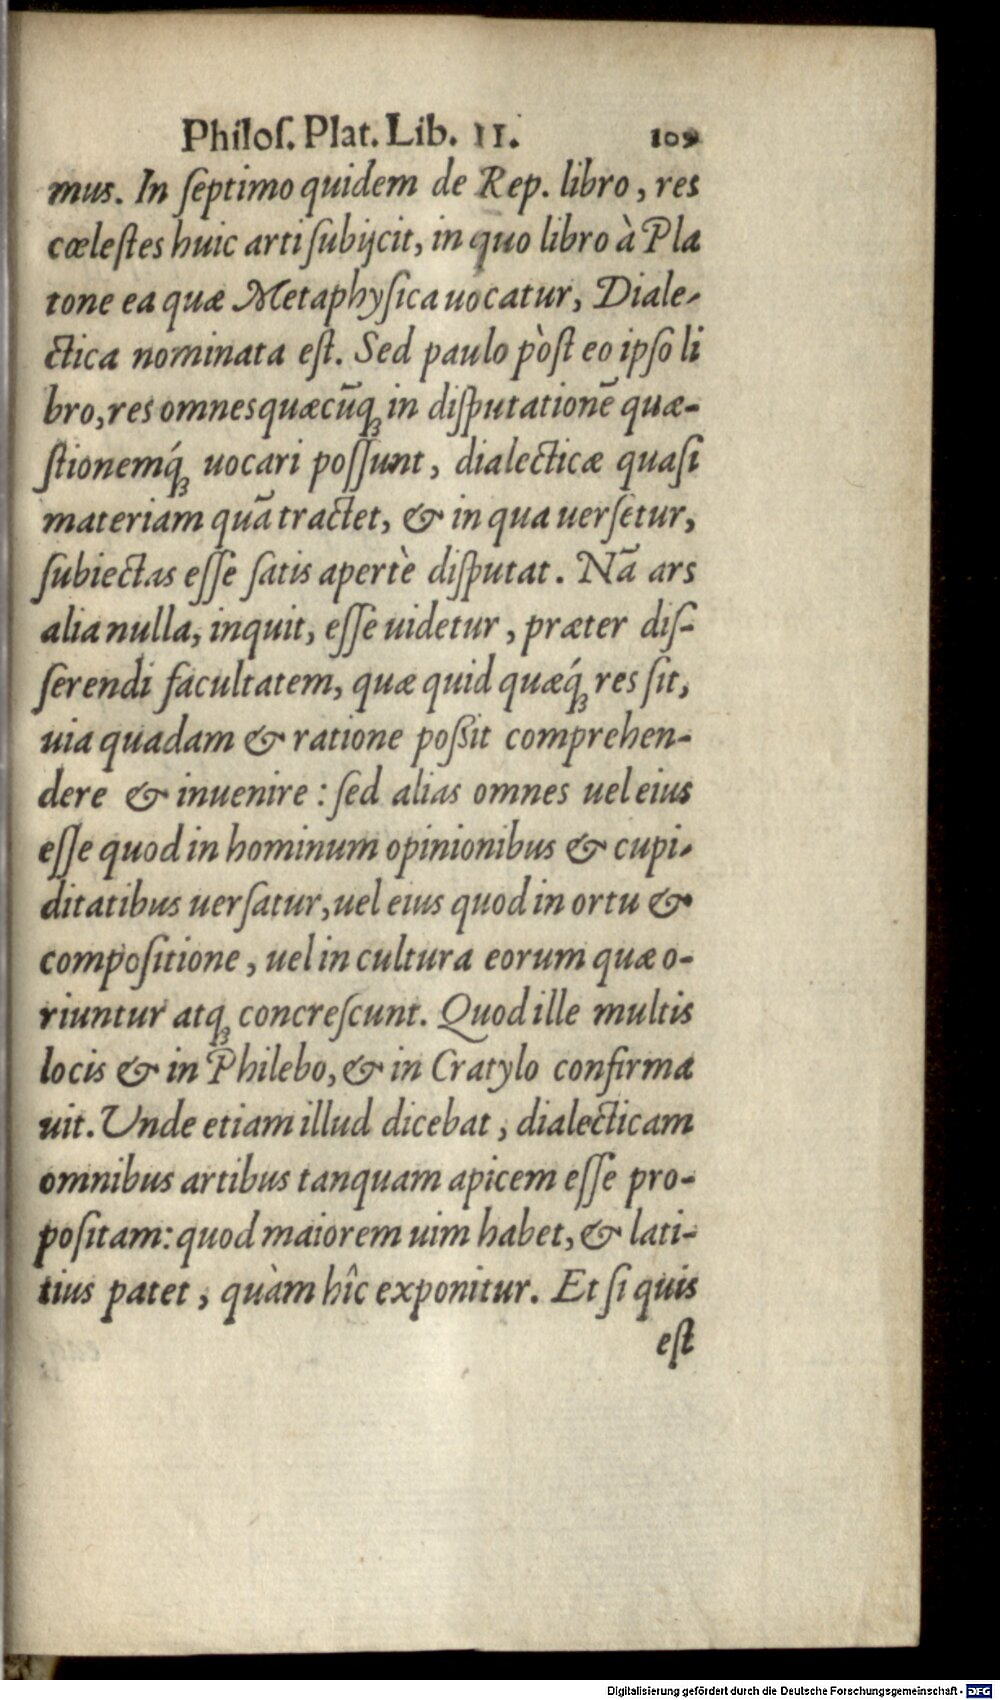 Philoſ. Plat. Lib. II. 109
mus. In ſeptimo quidem de Rep. libro, res
cœleſtes huic arti ſubijcit, in quo libro à Pla
tone ea quæ Metaphyſica uocatur, Diale-
ctica nominata eſt. Sed paulo pòſt eo ipſo li
bro, res omnes quæcūq; in diſputationē quæ-
ſtionemq́; uocari poſſunt, dialecticæ quaſi
materiam quā tractet, & in qua uerſetur,
ſubiectas eſſe ſatis apertè diſputat. Nā ars
alia nulla, inquit, eſſe uidetur, præter diſ-
ſerendi facultatem, quæ quid quæq́; res ſit,
uia quadam & ratione poßit comprehen-
dere & inuenire: ſed alias omnes uel eius
eſſe quod in hominum opinionibus & cupi-
ditatibus uerſatur, uel eius quod in ortu &
compoſitione, uel in cultura eorum quæ o-
riuntur atq; concreſcunt. Quod ille multis
locis & in Philebo, & in Cratylo confirma
uit. Unde etiam illud dicebat, dialecticam
omnibus artibus tanquam apicem eſſe pro-
poſitam: quod maiorem uim habet, & lati-
tius patet, quàm hîc exponitur. Et ſi quis
eſt
Digitalisierung gefördert durch die Deutsche Forschungsgemeinschaft - DFG